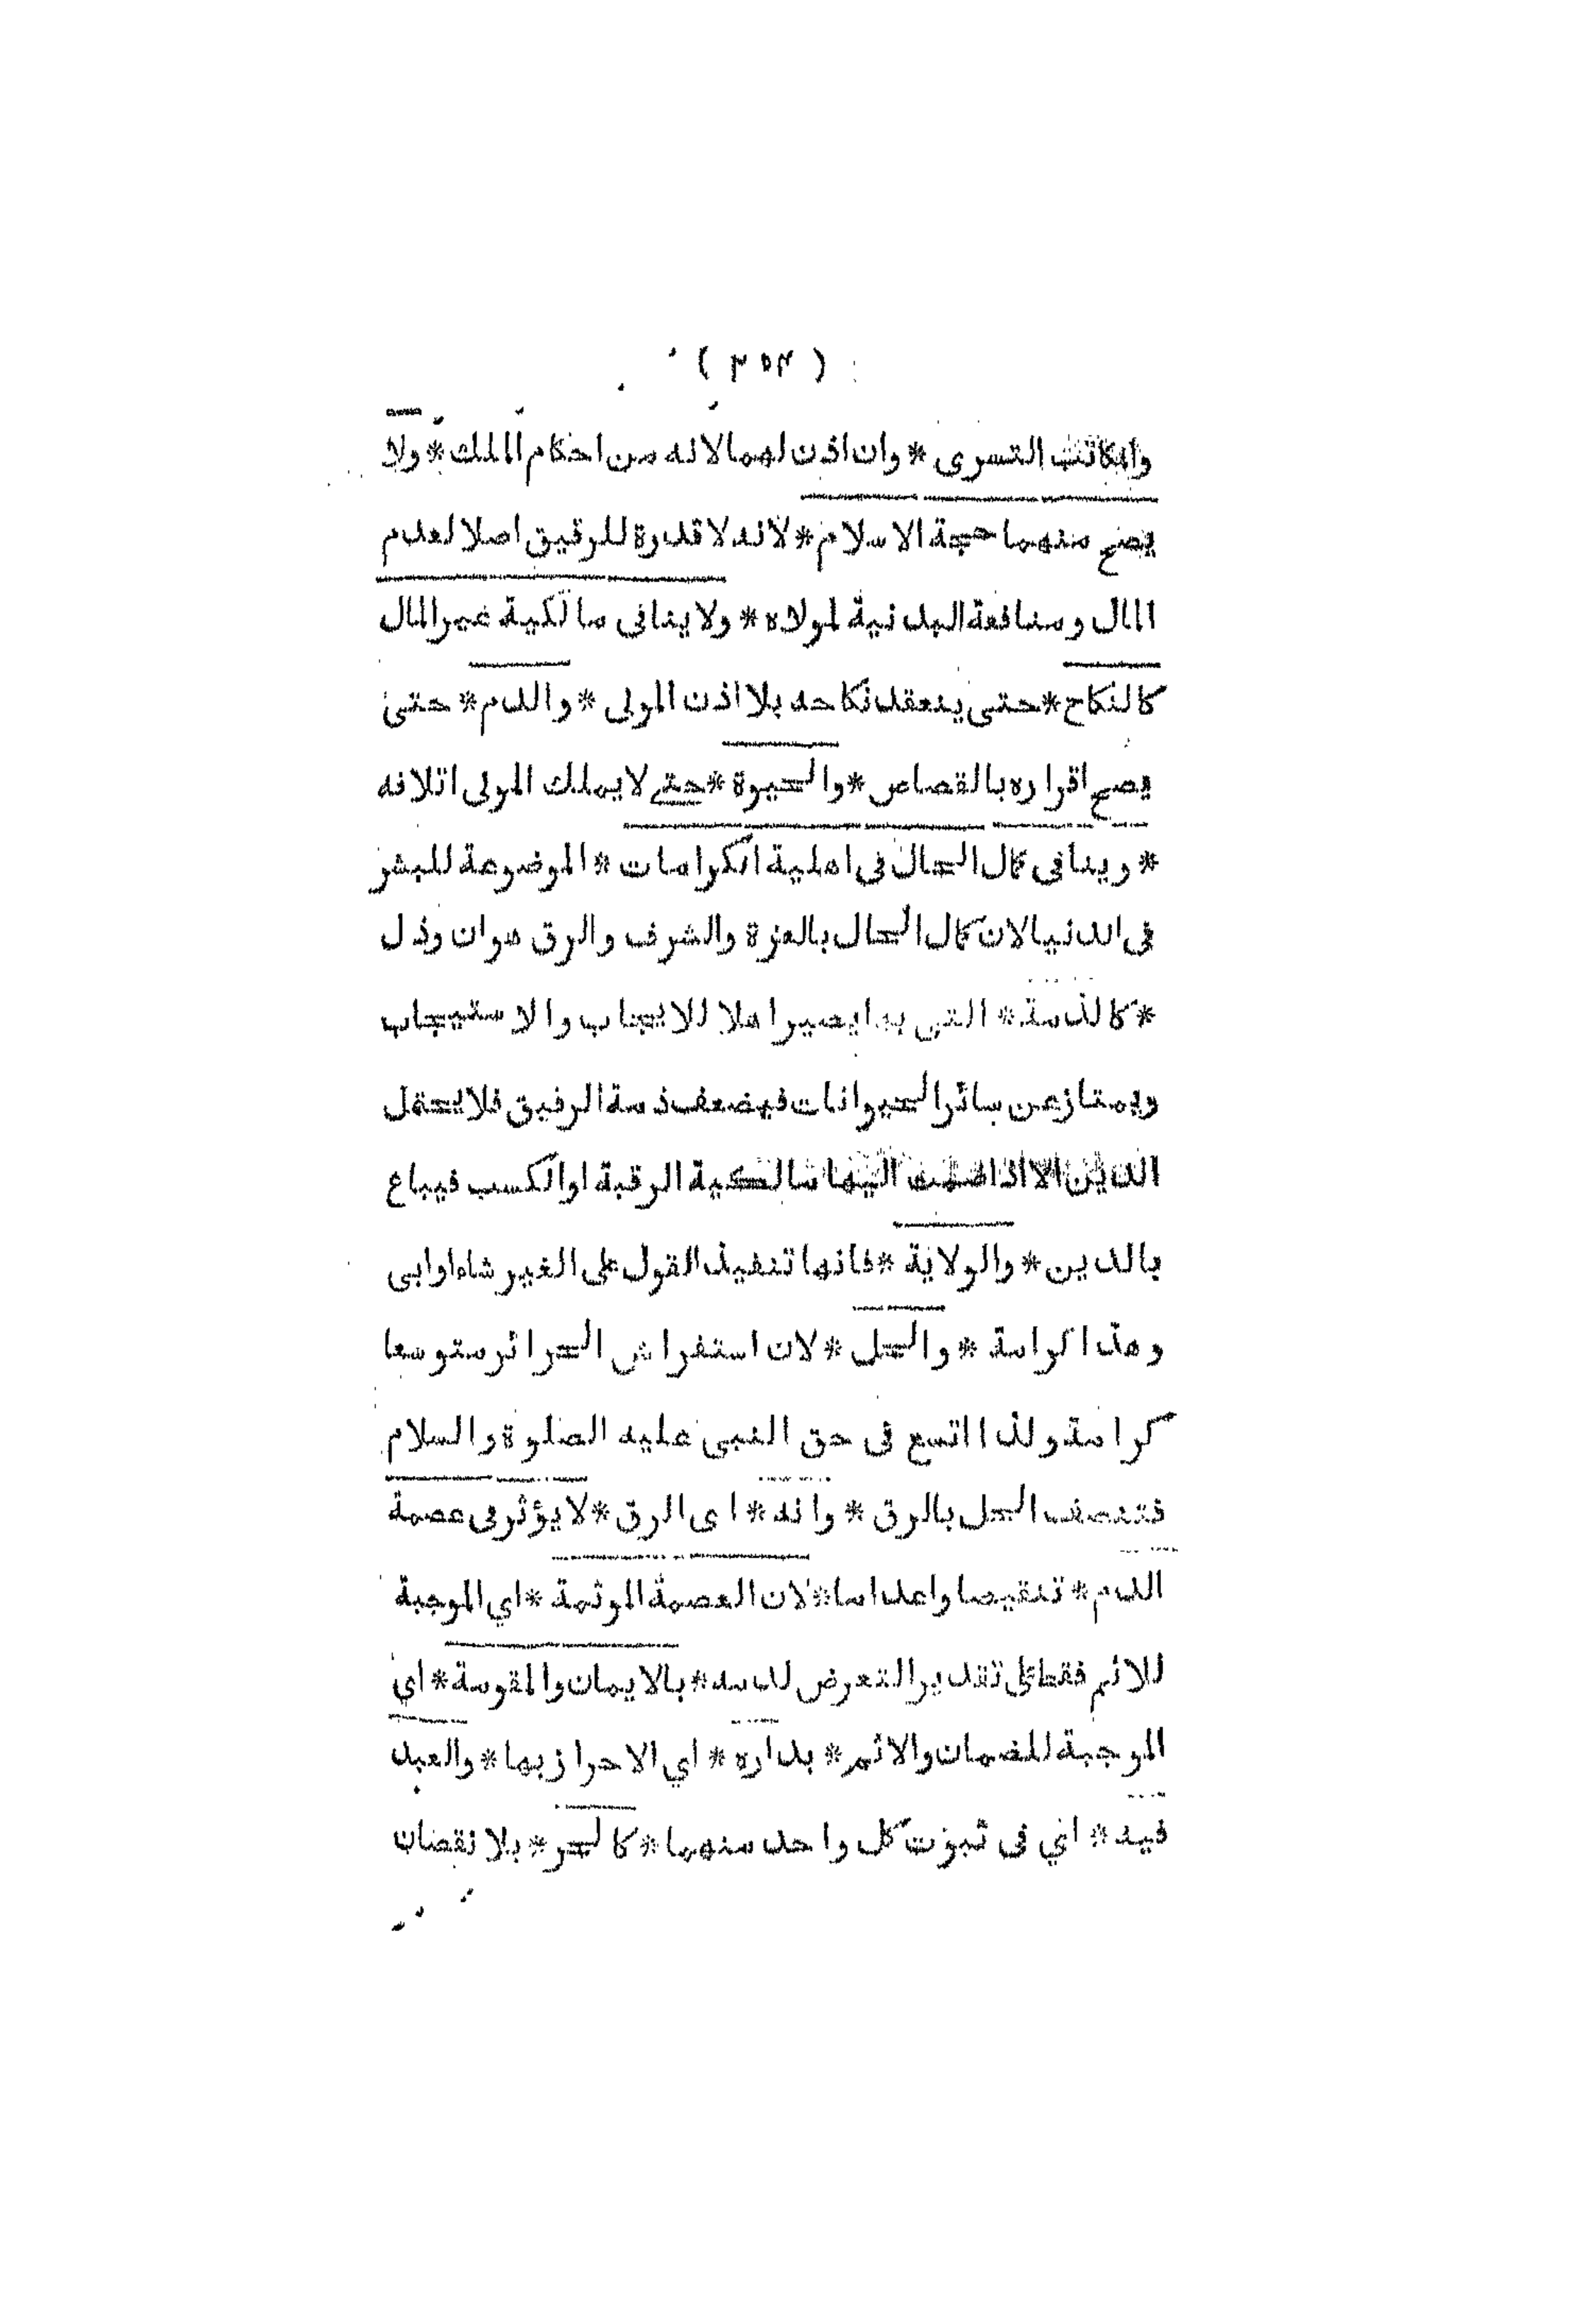 ( ٣٥٣ )
والمكاتب التسرى * وان اذن لهما لانه من احكام الملك * ولا
يصح منهما حجة الاسلام * لانه لا قدرة للرقيق اصلا لعدم
المال ومنافعة البدنية لمولاه * ولا ينافى مالكية غير المال
كالنكاح * حتى ينعقد نكاحه بلا اذن المولى * والدم * حتى
يصح اقراره بالقصاص * والحيوة * حتى لا يملك المولى اتلافه
* وينافى كمال الحال فى اهلية الكرامات * الموضوعة للبشر
فى الدنيا لان كمال الحال بالعزة والشرف والرق هوان وذل
* كالذمة * التى بها يصير اهلا للايجاب والاستيجاب
ويمتاز عن سائر الحيوانات فيضعف ذمة الرقيق فلا يحتمل
الدين الا اذا ضمت اليها مالكية الرقبة او الكسب فيباع
بالدين * والولاية * فانها تنفيذ القول على الغير شاء او ابى
وهذا كرامة * والحل * لان استفراش الحرائر متوسعا
كرامة ولذا اتسع فى حق النبى عليه الصلوة والسلام
فتنصف الحل بالرق * وانه * اى الرق * لا يؤثر فى عصمة
الدم * تنقيصا واعداما * لان العصمة الموثمة * اي الموجبة
للاثم فقط على تقدير التعرض لدمه * بالايمان والمقومة * اي
الموجبة للضمان والاثم * بداره * اي الاحراز بها * والعبد
فيه * اي فى ثبوت كل واحد منهما * كالحر * بلا نقصان